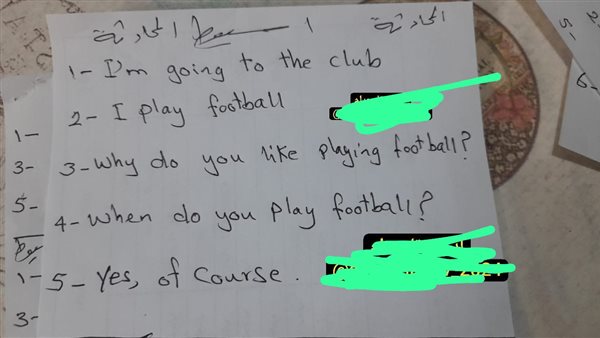 المحادثة ١ المحادثة
1- I'm going to the club
2- I play football
1-
3- 3- Why do you like playing football?
5- 4- When do you play football?
1- 5- Yes, of course.
3-
5-
6-